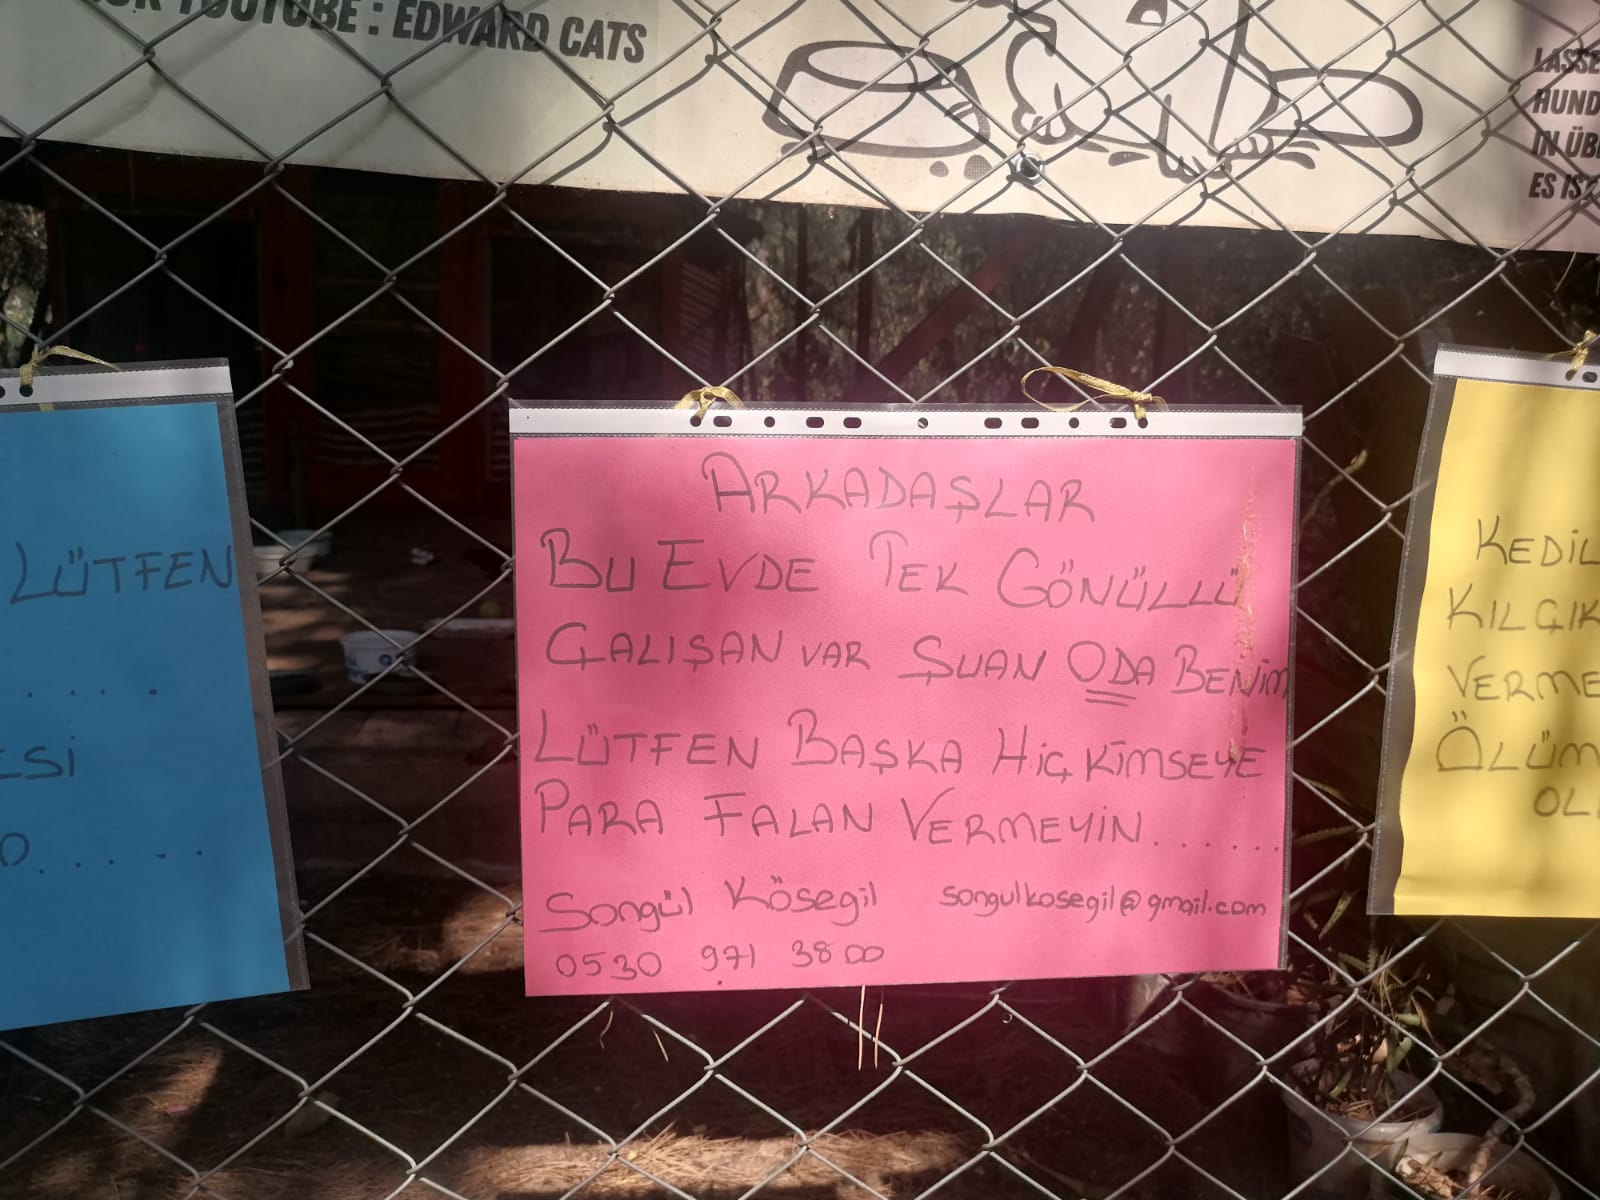 YOUTUBE : EDWARD CATS
HUND
ES IST
LÜTFEN
. . . . .
ARKADAŞLAR
BU EVDE TEK GÖNÜLLÜ
ÇALIŞAN VAR ŞUAN ODA BENİM
LÜTFEN BAŞKA HİÇ KİMSEYE
PARA FALAN VERMEYİN.......
Songül Kösegil songulkosegil@gmail.com
0530 971 3800
KEDİL
KILÇIK
VERME
ÖLÜM